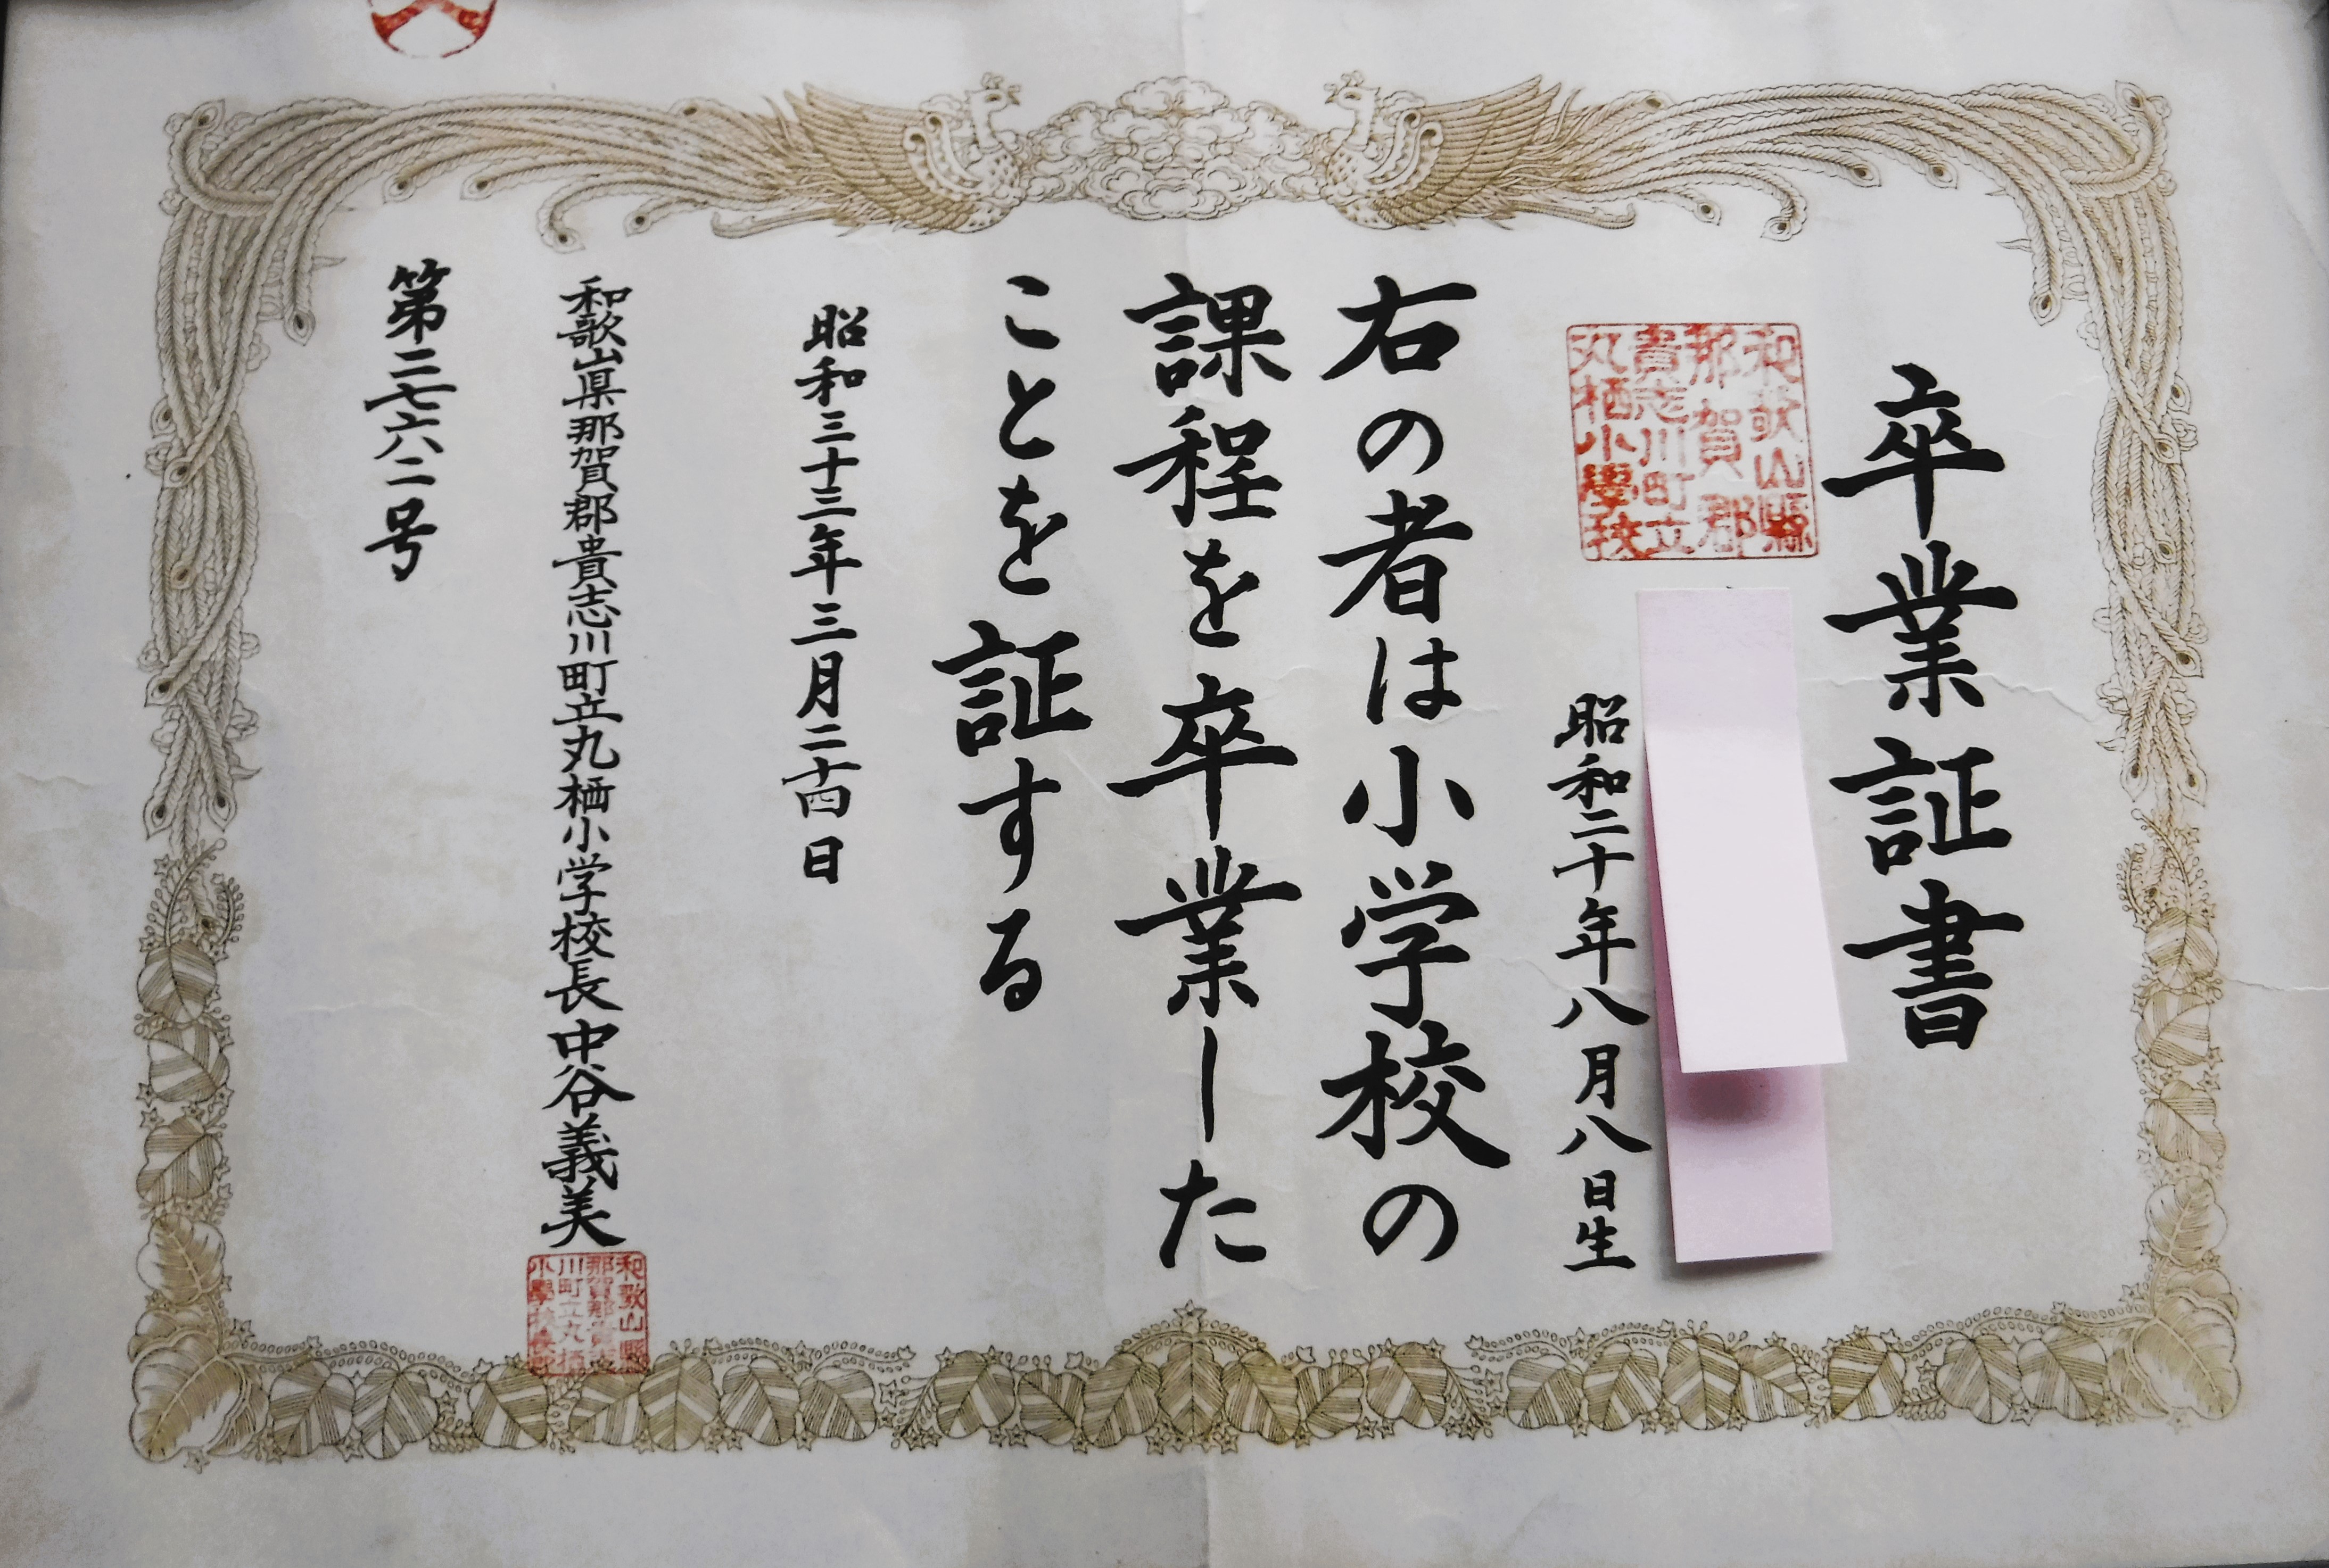 卒業証書
和歌山縣
那賀郡
貴志川町立
丸栖小學校
昭和二十年八月八日生
右の者は小学校の
課程を卒業した
ことを証する
昭和三十三年三月二十四日
和歌山県那賀郡貴志川町立丸栖小学校長中谷義美
第二七六二号